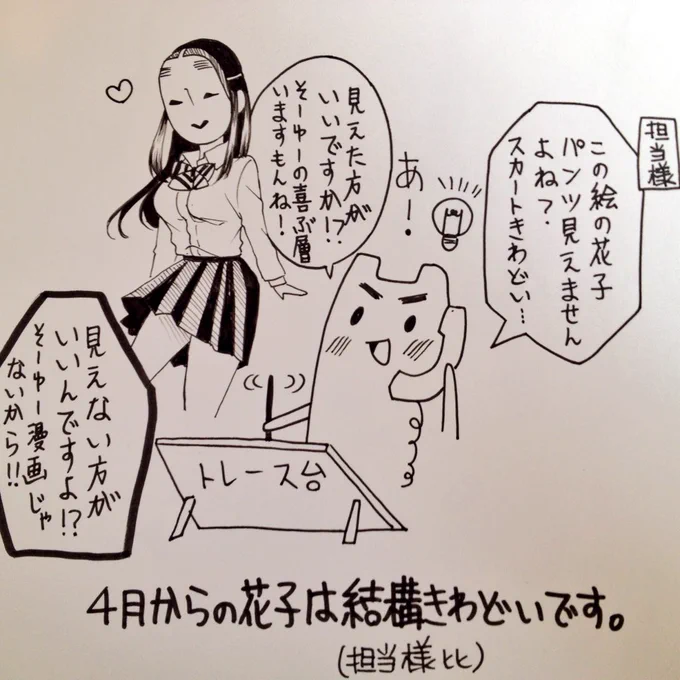 担当様
この絵の花子
パンツ見えません
よね？
スカートきわどい…
あ！
見えた方が
いいですか!?
そーゆーの喜ぶ層
いますもんね！
見えない方が
いいんですよ!?
そーゆー漫画じゃ
ないから!!
トレース台
4月からの花子は結構きわどいです。
(担当様比)